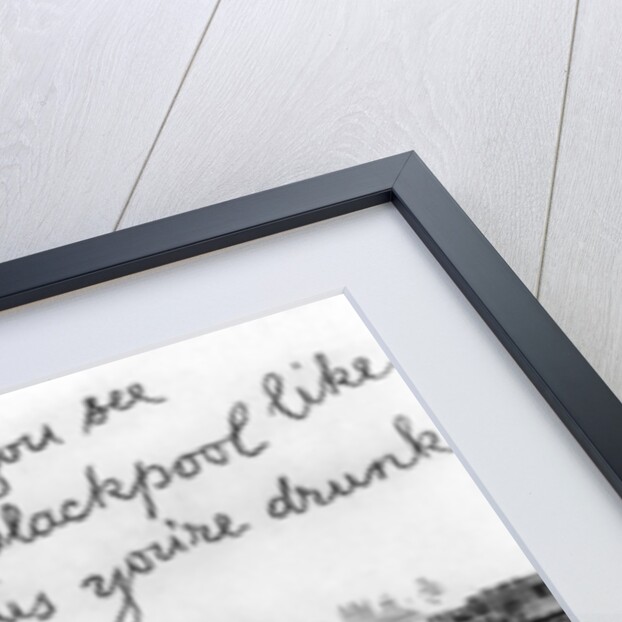 you see
Blackpool like
this you're drunk